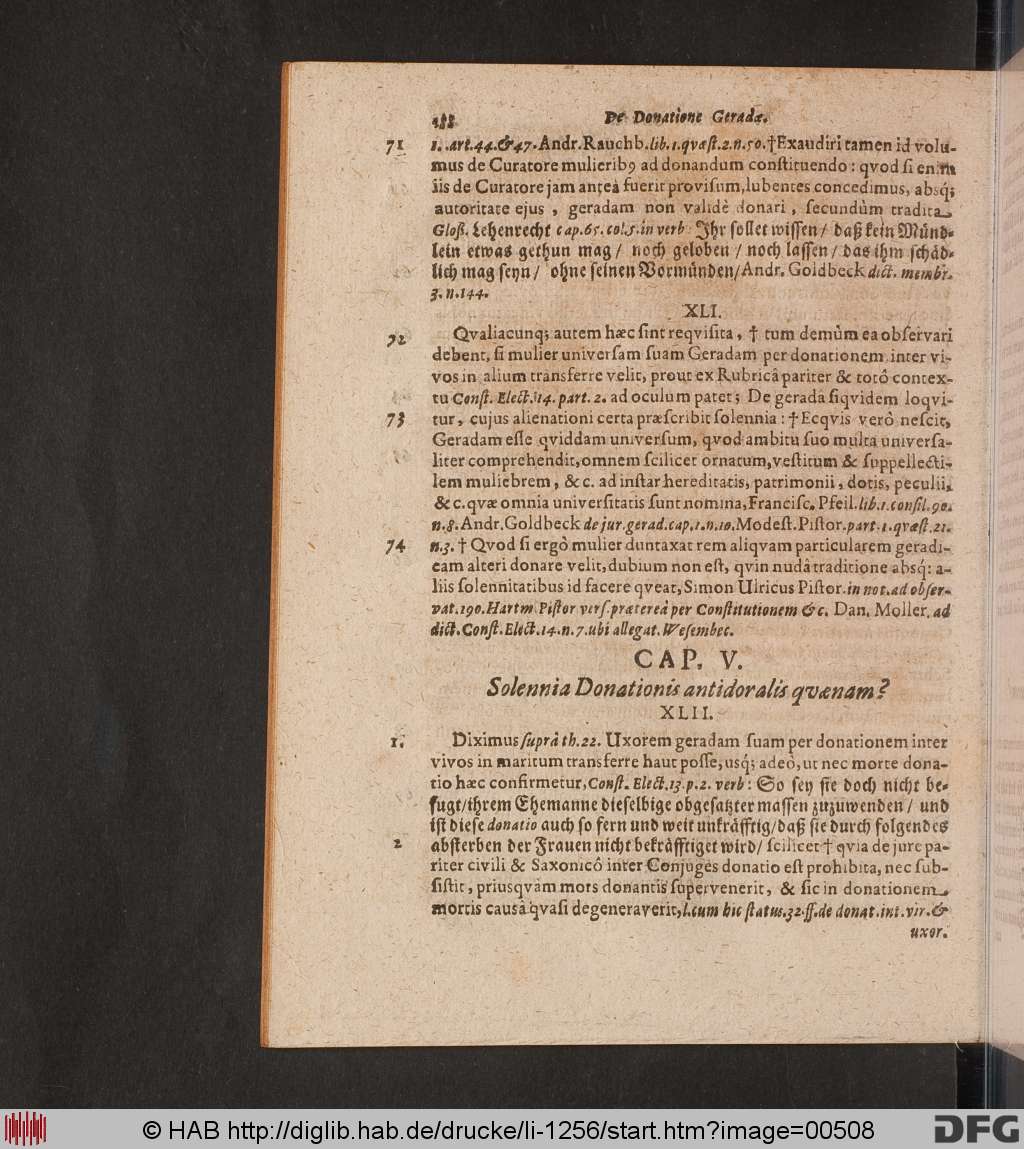 De Donatione Geradæ.
71 1. art. 44. & 47. Andr. Rauchb. lib. 1. qvæst. 2. n. 50. † Exaudiri tamen id volu-
mus de Curatore mulierib9 ad donandum constituendo: qvod si enim
iis de Curatore jam anteà fuerit provisum, lubentes concedimus, absq;
autoritate ejus, geradam non validè donari, secundùm tradita
Gloß. Lehenrecht cap. 65. col. 5. in verb: Ihr sollet wissen/ daß kein Münd-
lein etwas gethun mag/ noch geloben/ noch lassen/ das ihm schäd-
lich mag seyn/ ohne seinen Vormünden/ Andr. Goldbeck dict. membr.
3. n. 144.
XLI.
72 Qvaliacunq; autem hæc sint reqvisita, † tum demùm ea observari
debent, si mulier universam suam Geradam per donationem inter vi-
vos in alium transferre velit, prout ex Rubricâ pariter & totô contex-
tu Const. Elect. 14. part. 2. ad oculum patet; De geradâ siqvidem loqvi-
73 tur, cujus alienationi certa præscribit solennia: † Ecqvis verò nescit,
Geradam esse qviddam universum, qvod ambitu suo multa universa-
liter comprehendit, omnem scilicet ornatum, vestitum & suppellecti-
lem muliebrem, &c. ad instar hereditatis, patrimonii, dotis, peculii,
&c. qvæ omnia universitatis sunt nomina, Francisc. Pfeil. lib. 1. consil. 90.
n. 8. Andr. Goldbeck de jur. gerad. cap. 1. n. 10. Modest. Pistor. part. 1. qvæst. 21.
74 n. 3. † Qvod si ergò mulier duntaxat rem aliqvam particularem geradi-
cam alteri donare velit, dubium non est, qvin nudâ traditione absq: a-
liis solennitatibus id facere qveat, Simon Ulricus Pistor. in not. ad obser-
vat. 190. Hartm Pistor vers. prætereà per Constitutionem &c. Dan. Moller. ad
dict. Const. Elect. 14. n. 7. ubi allegat. Wesembec.
CAP. V.
Solennia Donationis antidoralis qvænam?
XLII.
1. Diximus suprà th. 22. Uxorem geradam suam per donationem inter
vivos in maritum transferre haut posse, usq; adeò, ut nec morte dona-
tio hæc confirmetur, Const. Elect. 13. p. 2. verb: So sey sie doch nicht be-
fugt/ ihrem Ehemanne dieselbige obgesatzter massen zuzuwenden/ und
ist diese donatio auch so fern und weit unkräfftig/ daß sie durch folgendes
2 absterben der Frauen nicht bekräfftiget wird/ scilicet † qvia de jure pa-
riter civili & Saxonicô inter Conjuges donatio est prohibita, nec sub-
sistit, priusqvàm mors donantis supervenerit, & sic in donationem
mortis causâ qvasi degeneraverit, l. cum hic status. 32. ff. de donat. int. vir. &
uxor.
© HAB http://diglib.hab.de/drucke/li-1256/start.htm?image=00508
DFG